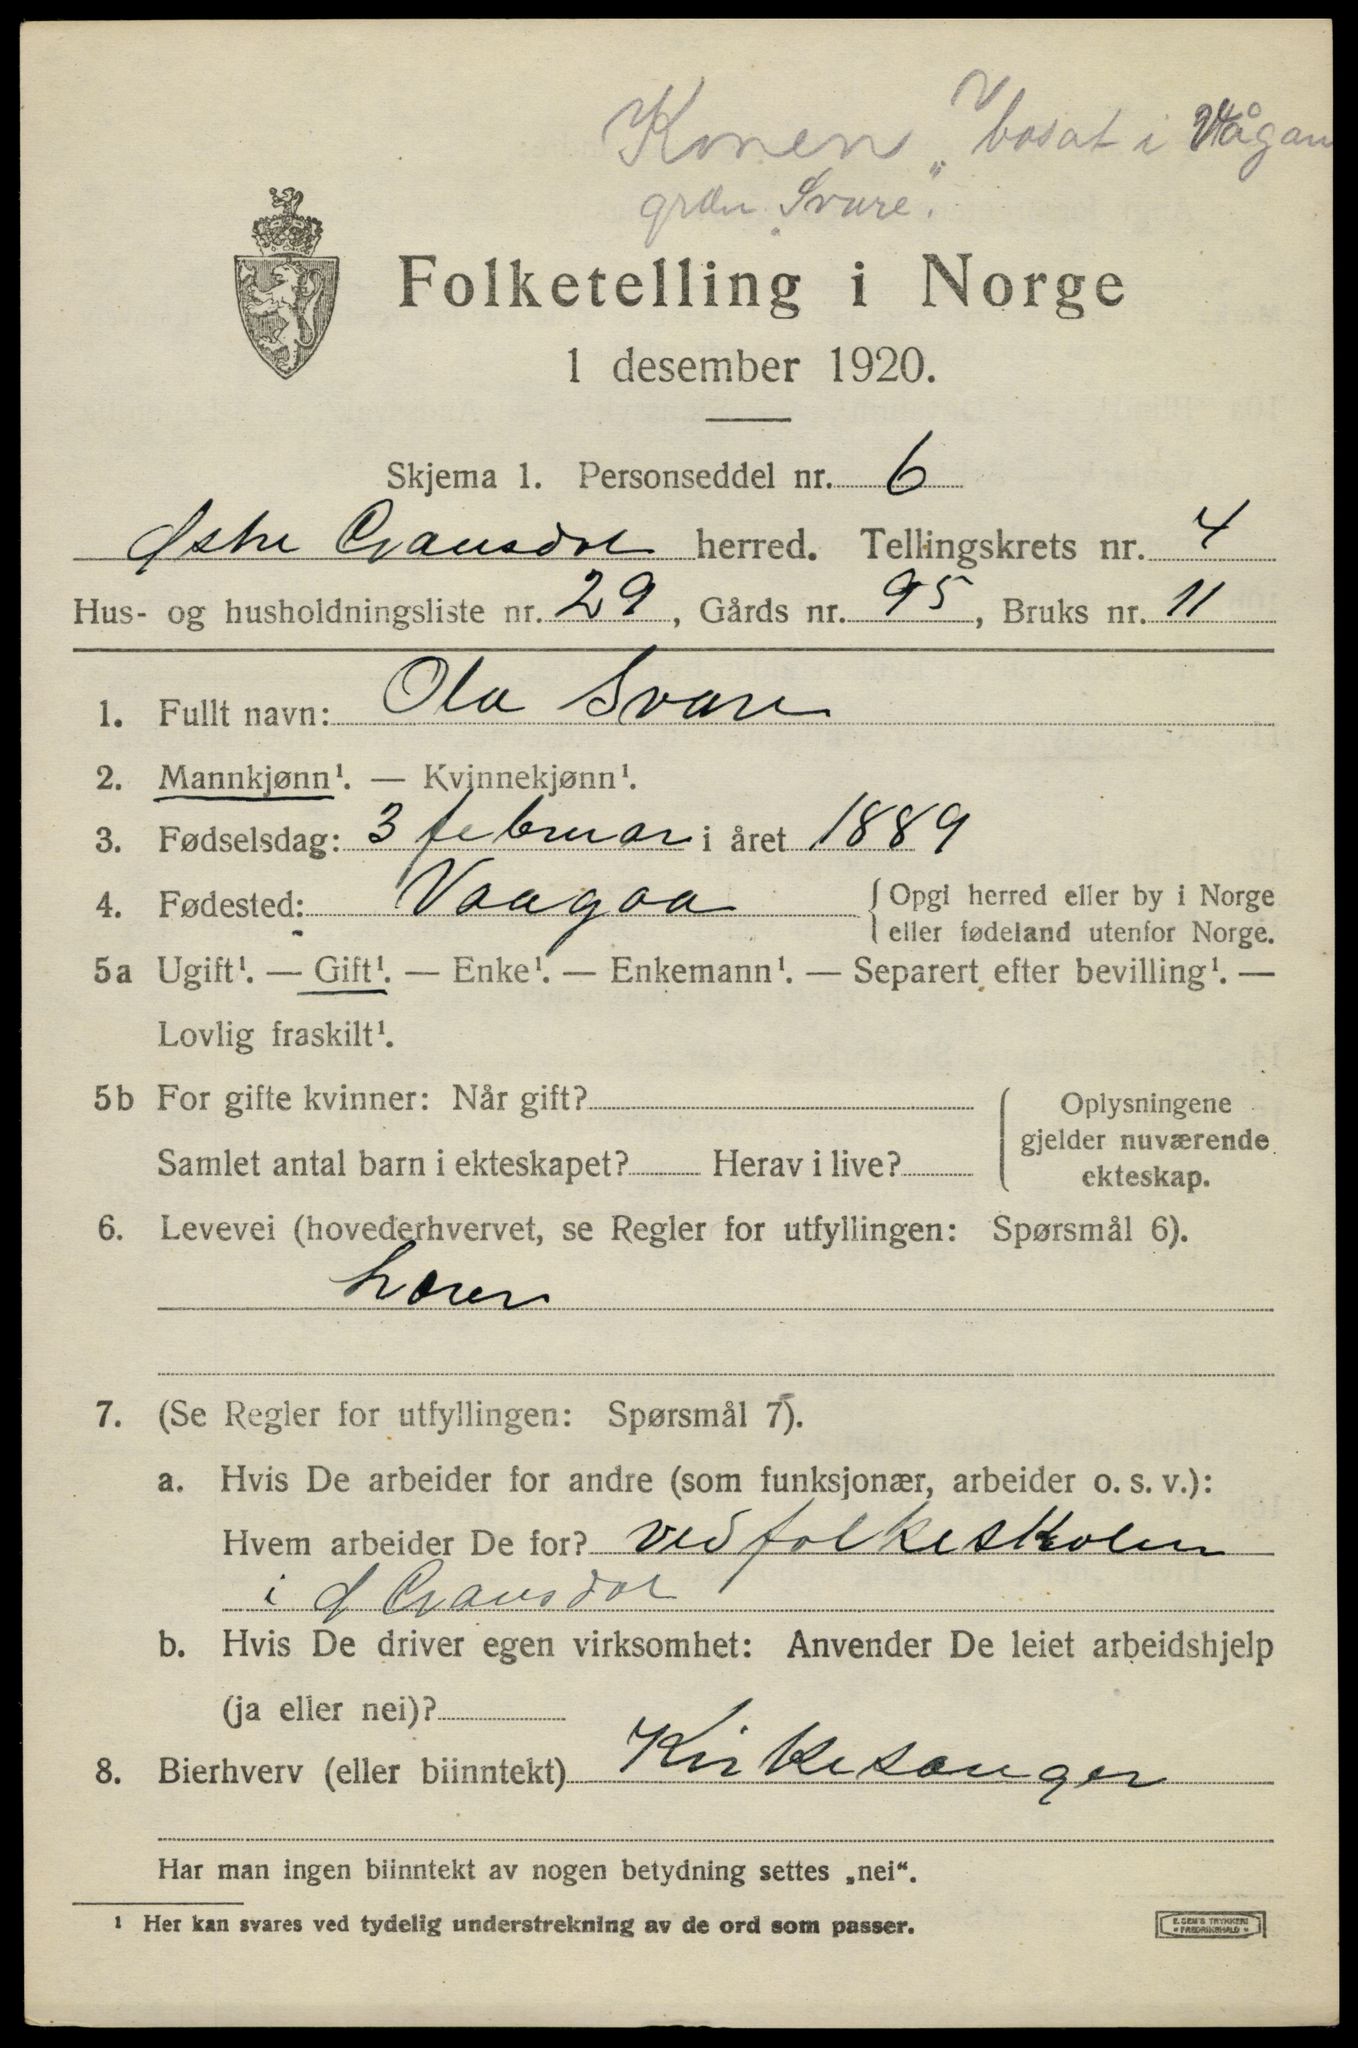 Konen bosat i Vågan
grden „Svare“.
Folketelling i Norge
1 desember 1920.
Skjema 1. Personseddel nr. 6
Østre Gausdal herred. Tellingskrets nr. 4
Hus- og husholdningsliste nr. 29, Gårds nr. 95, Bruks nr. 11
1. Fullt navn: Ola Svare
2. Mannkjønn¹. — Kvinnekjønn¹.
3. Fødselsdag: 3 februar i året 1889
4. Fødested: Vaagaa {Opgi herred eller by i Norge
eller fødeland utenfor Norge.
5a Ugift¹. — Gift¹. — Enke¹. — Enkemann¹. — Separert efter bevilling¹. —
Lovlig fraskilt¹.
5b For gifte kvinner: Når gift?
Samlet antal barn i ekteskapet? Herav i live?
Oplysningene
gjelder nuværende
ekteskap.
6. Levevei (hovederhvervet, se Regler for utfyllingen: Spørsmål 6).
Lærer
7. (Se Regler for utfyllingen: Spørsmål 7).
a. Hvis De arbeider for andre (som funksjonær, arbeider o. s. v.):
Hvem arbeider De for? ved folkeskolen
i Ø Gausdal
b. Hvis De driver egen virksomhet: Anvender De leiet arbeidshjelp
(ja eller nei)?
8. Bierhverv (eller biinntekt) Kirkesanger
Har man ingen biinntekt av nogen betydning settes „nei“.
¹ Her kan svares ved tydelig understrekning av de ord som passer.
E. SEM'S TRYKKERI
FREDRIKSHALD